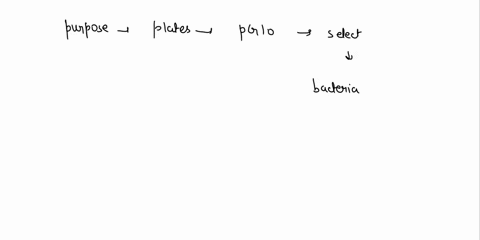 purpose → plates → pGlo → select
↓
bacteria